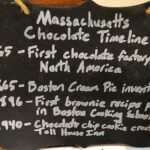 Massachusetts
Chocolate Timeline
65 - First chocolate factory
North America
65 - Boston Cream Pie invent
896 - First brownie recipe
in Boston Cooking
1940 - Chocolate chip cookie
Toll House Inn